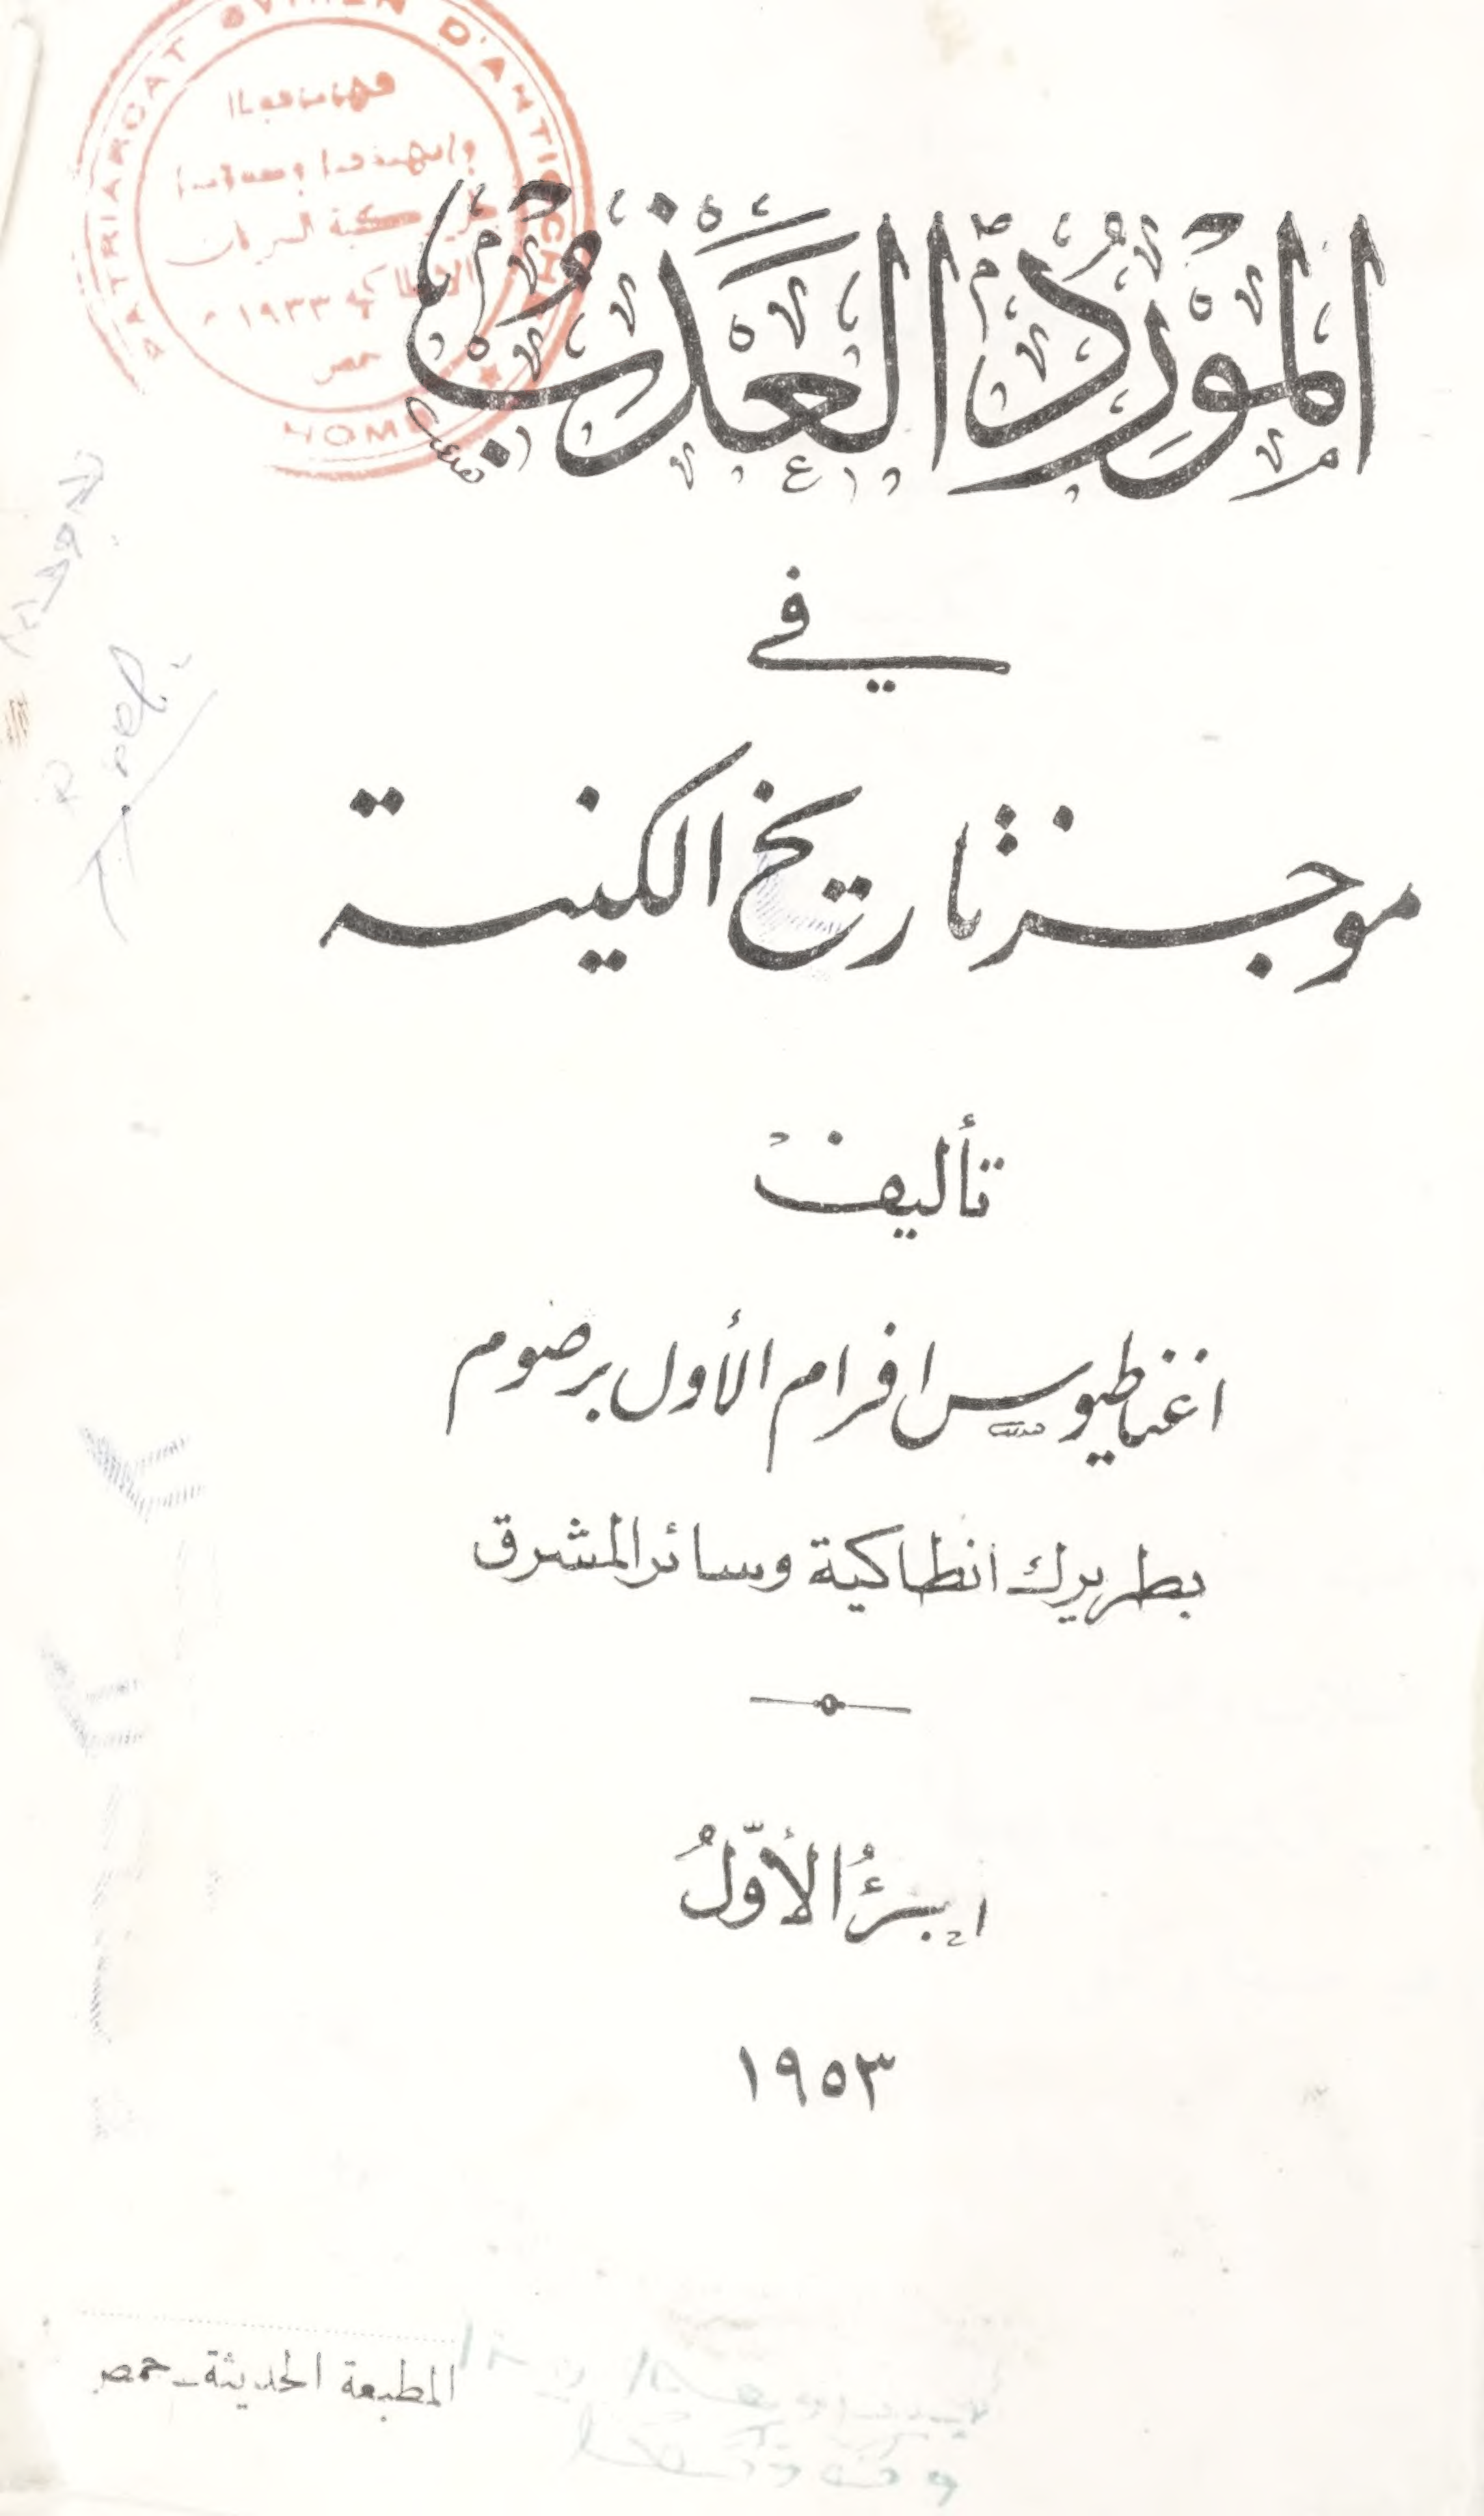 PATRIARCAT SYRIEN D'ANTIOCHE
بطريركية السريان
١٩٣٣ م
حمص
HOMS
المَوْرِدُ العَذْبُ
في
موجز تاريخ الكنيسة
تأليف
اغناطيوس افرام الأول برصوم
بطريرك انطاكية وسائر المشرق
الجزءُ الأوّلُ
١٩٥٣
المطبعة الحديثة ـ حمص